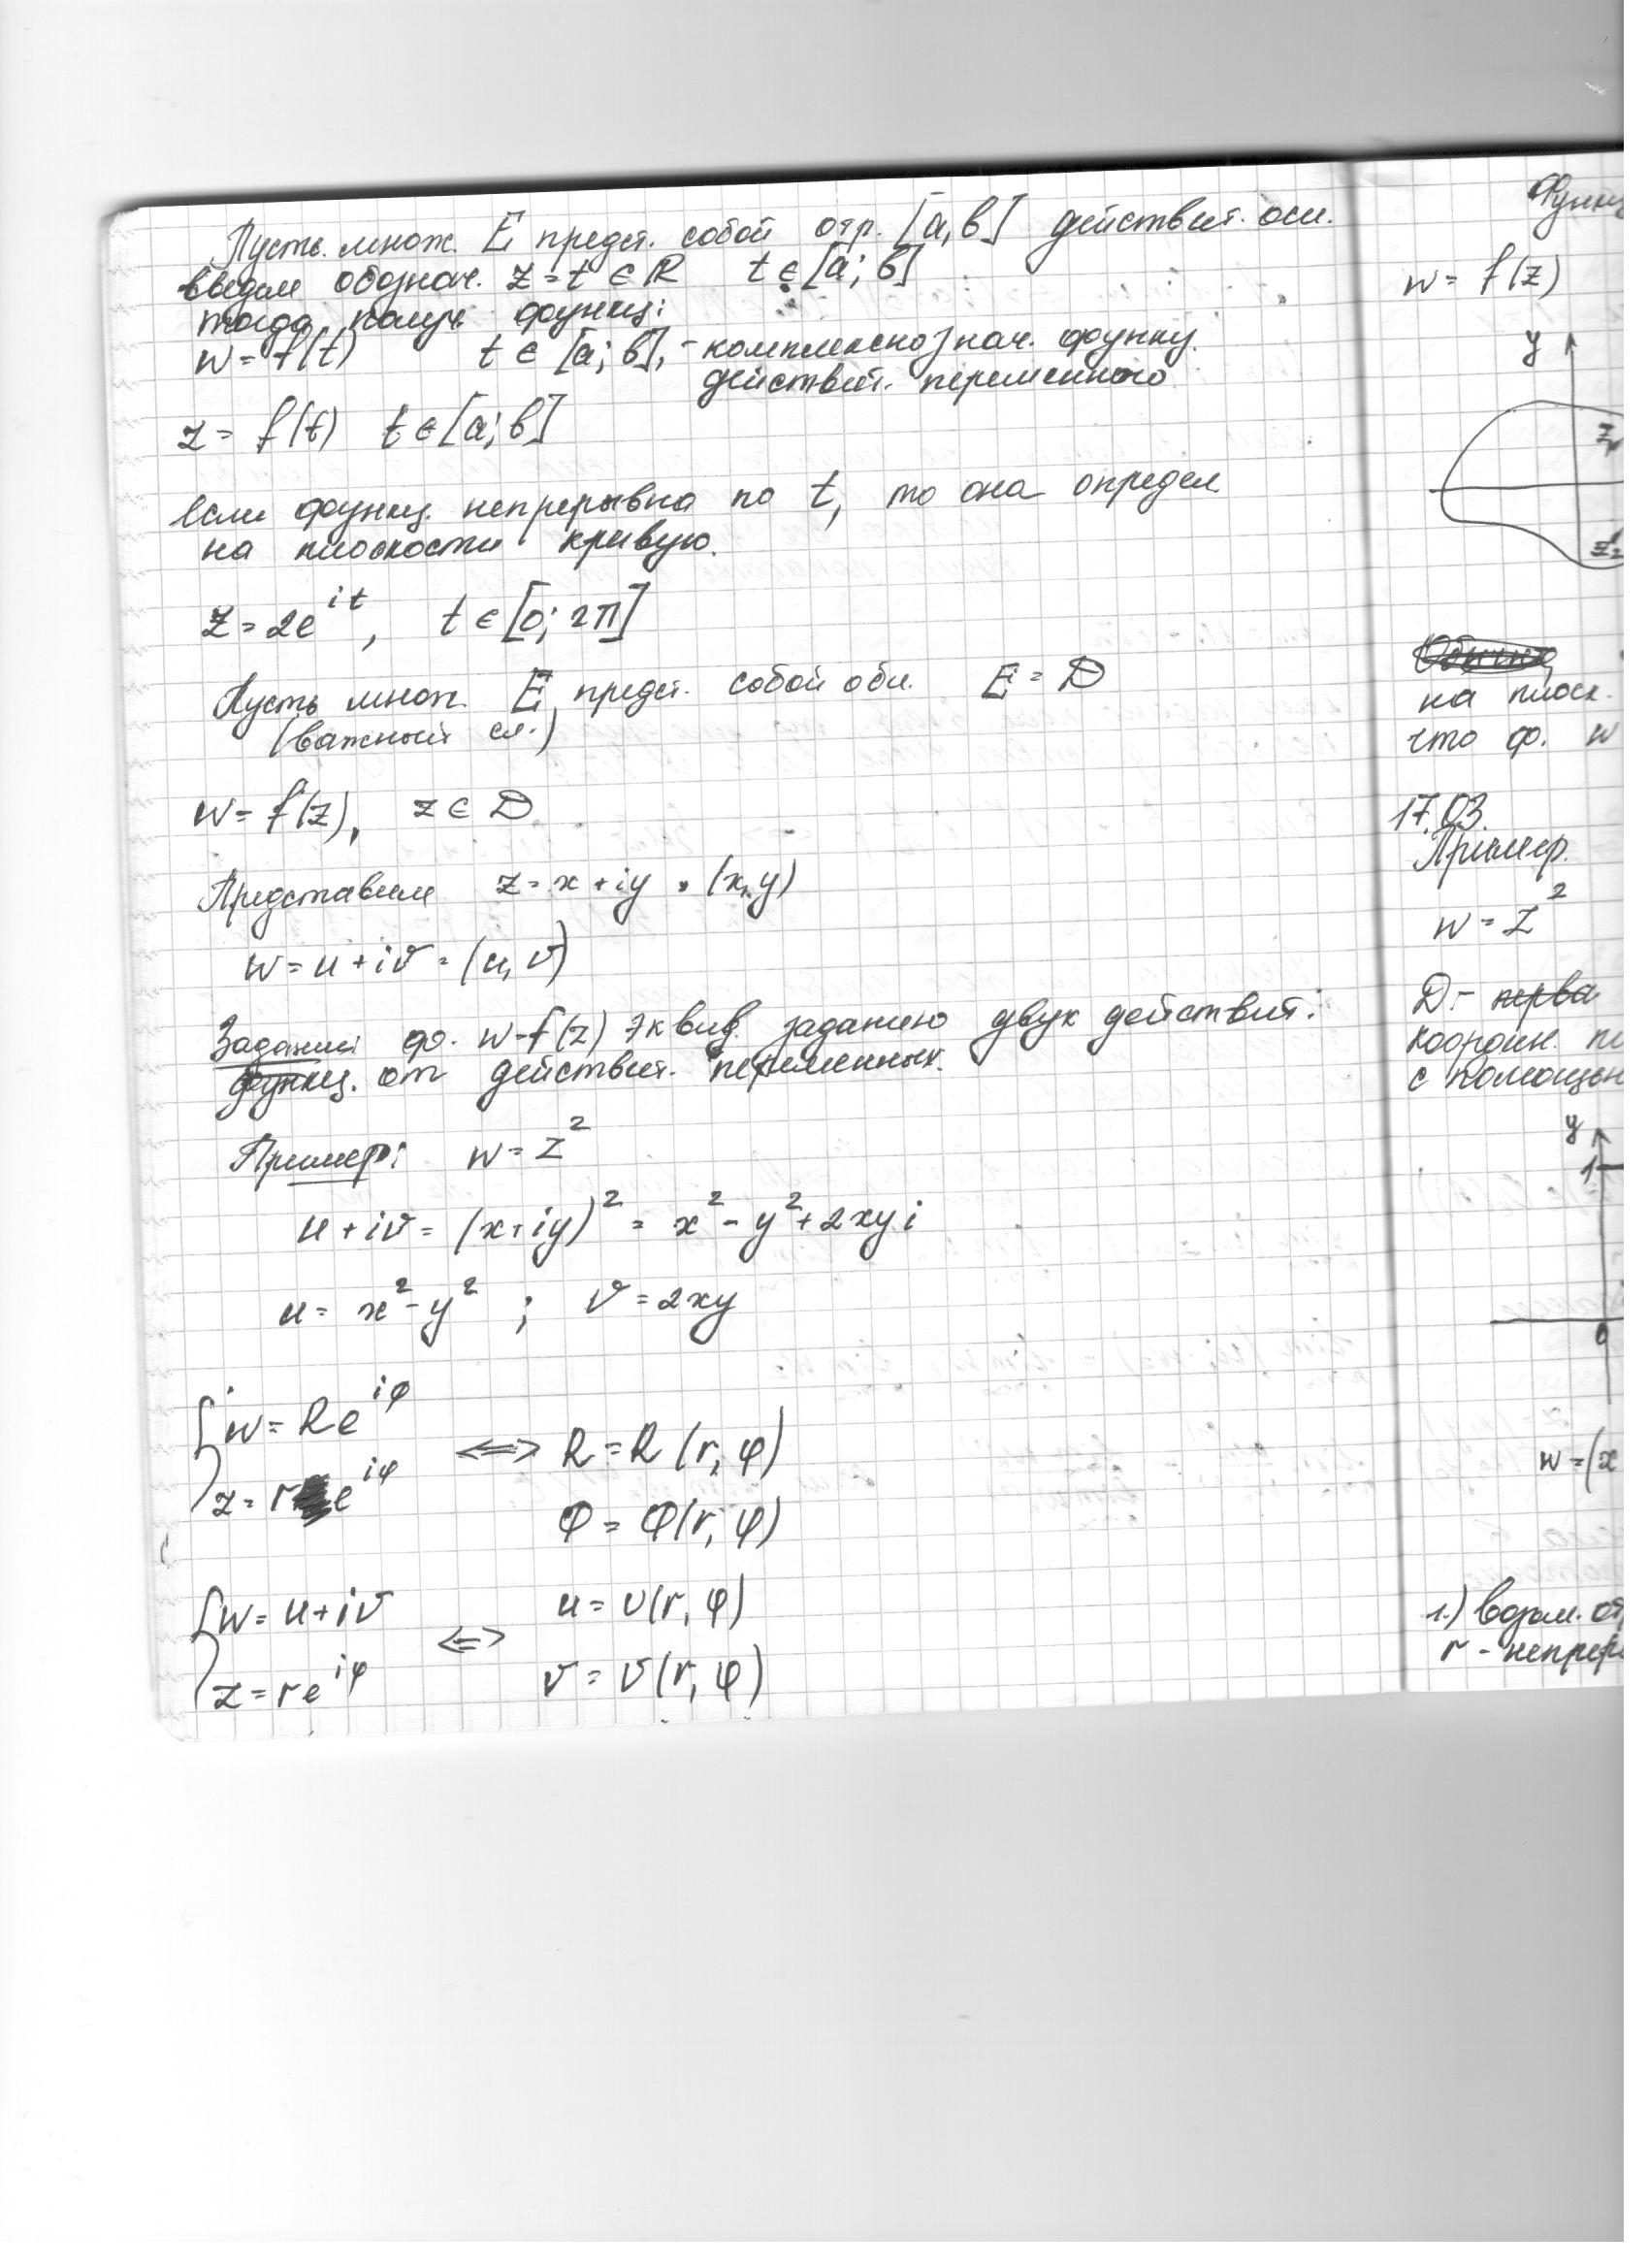 Пусть множ. E предст. собой отр. [a,b] действит. оси.
введем обознач. z=t ∈ ℝ t ∈ [a; b]
тогда получ. функц:
w = f(t) t ∈ [a; b], - комплекснознач. функц.
действит. переменного
z = f(t) t ∈ [a; b]
если функц. непрерывна по t, то она определ.
на плоскости кривую.
z = 2e^{it}, t ∈ [0; 2π]
Пусть множ. E предст. собой обл. E = D
(важный сл.)
w = f(z), z ∈ D
Представим z = x + iy = (x, y)
w = u + iv = (u, v)
Задание ф. w=f(z) эквив. заданию двух действит.
функц. от действит. переменных.
Пример: w = z²
u + iv = (x + iy)² = x² - y² + 2xyi
u = x² - y² ; v = 2xy
w = Re^{iφ}
⟺ R = R(r, φ)
z = re^{iφ}
Φ = Φ(r, φ)
w = u + iv u = u(r, φ)
⟺
z = re^{iφ} v = v(r, φ)
Функц
w = f(z)
y
на плоск.
что ф. w
17.03.
Пример.
w = z²
D -
коорdин. п
с помощью
y
1
0
w = (x
1.) возьм. от
r - непрер